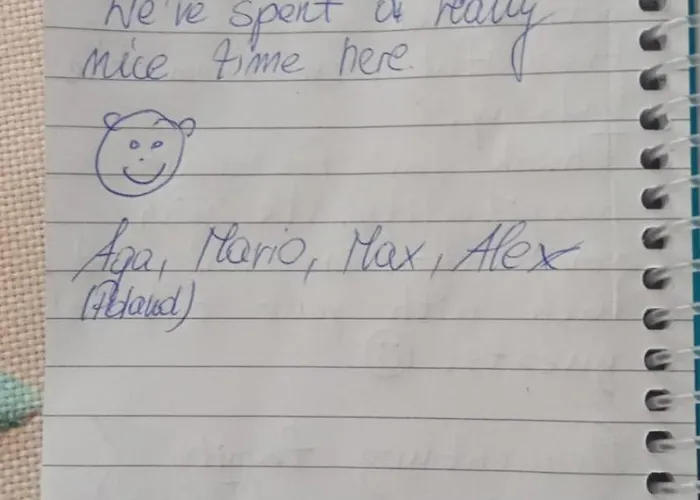 We've spent a really
nice time here.
Aga, Mario, Max, Alex
(Poland)